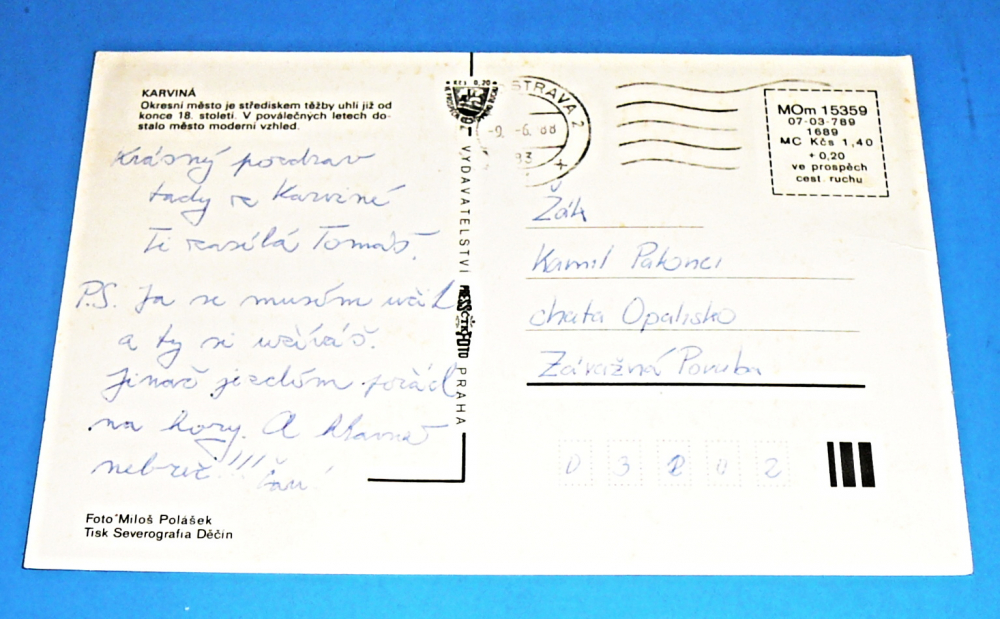 KARVINÁ
Okresní město je střediskem těžby uhlí již od
konce 18. století. V poválečných letech do-
stalo město moderní vzhled.
Krásný pozdrav
tady z Karviné
Ti zasílá Tomáš.
P.S. Ja se musím učit
a ty si užíváš.
Jinač jezdím pořád
na hory. A hlavně
nebreč!!! Čau!
Foto Miloš Polášek
Tisk Severografia Děčín
Kčs 0,20
VYDAVATELSTVÍ PRESSFOTO PRAHA
OSTRAVA 2
-9.-6.88
MOm 15359
07-03-789
1689
MC Kčs 1,40
+ 0,20
ve prospěch
cest. ruchu
Žák
Kamil
chata Opalisko
Závažná Poruba
0 3 2 0 2